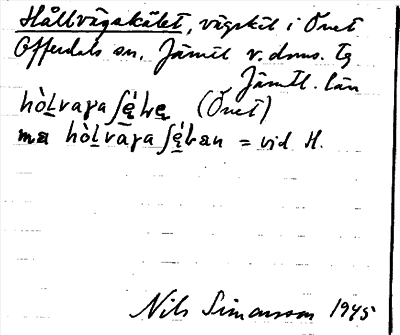 Hållvägskälet, vägskil i Önet
Offerdals sn, Jämtl v. doms. tg
Jämtl. län
hòlvaγaʃę́lvę (Önet)
ma hòlvaγaʃę́lvan = vid H.
Nils Simonsson 1945